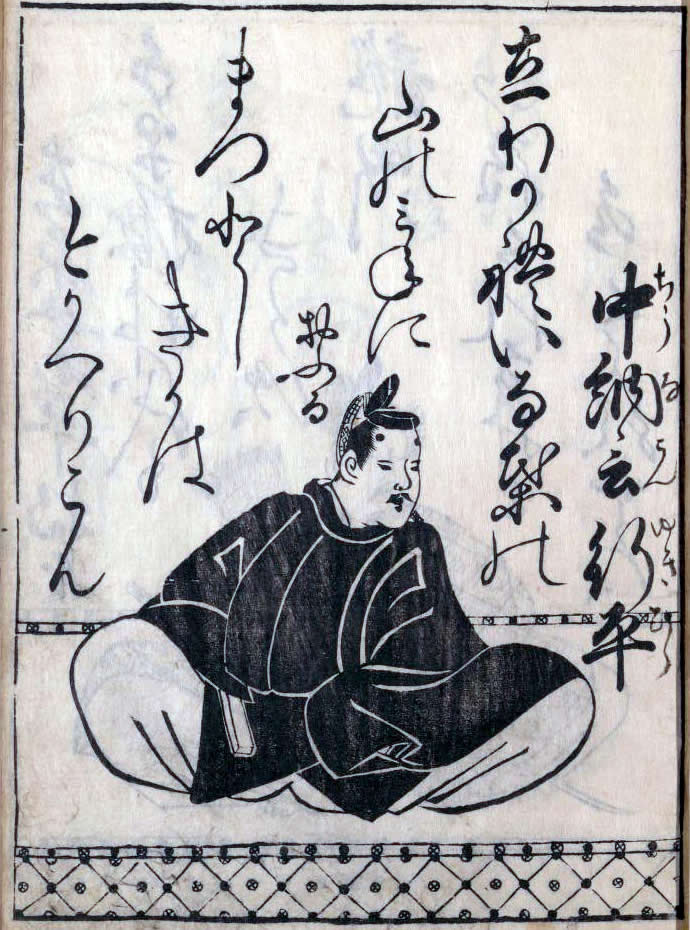 中納言行平
ちうなこんゆきひら
立わかれいな葉の
山のみねに
おふる
まつとし
きかは
今かへりこん